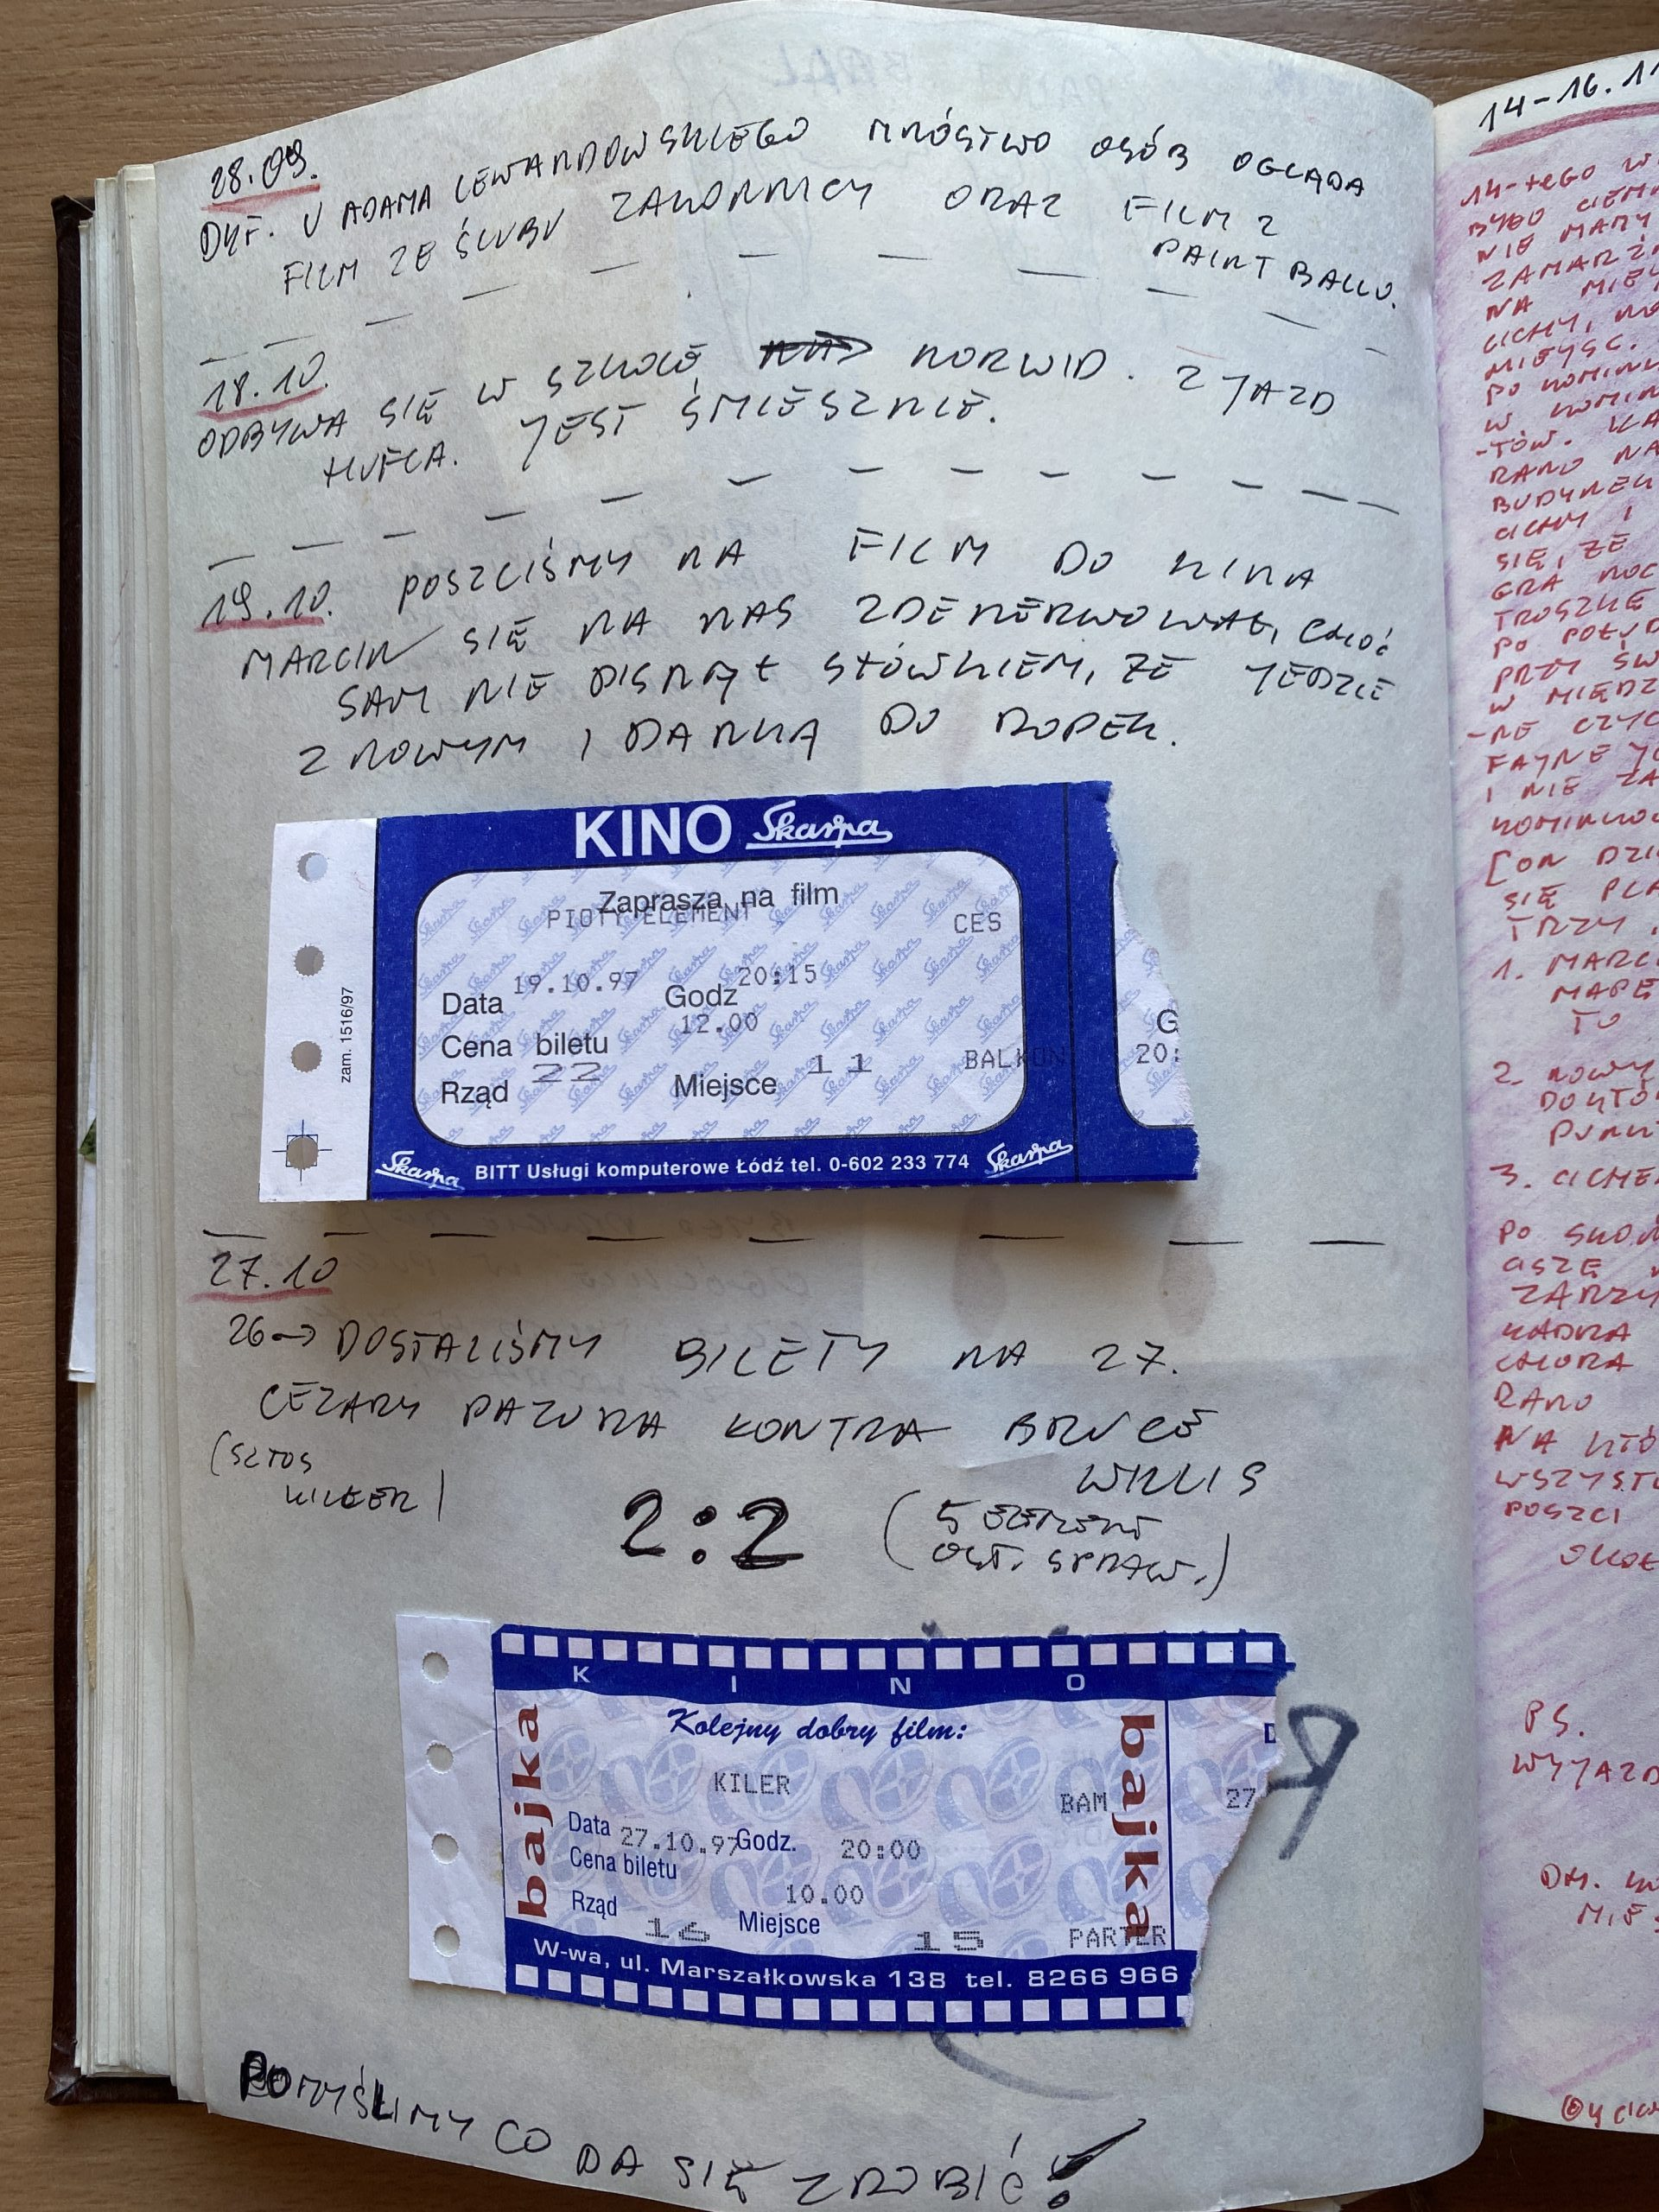 28.09.
DYF. U ADAMA LEWANDOWSKIEGO MNÓSTWO OSÓB OGLĄDA
FILM ZE ŚLUBU ZAKONNICY ORAZ FILM Z
PAINT BALLU.
18.10.
ODBYWA SIĘ W SZKOLE NORWID. ZJAZD
HUFCA. JEST ŚMIESZNIE.
19.10. POSZLIŚMY NA FILM DO KINA
MARCIN SIĘ NA NAS ZDENERWOWAŁ, CHOĆ
SAM NIE PISNĄŁ SŁÓWKIEM, ŻE JEDZIE
Z NOWYM I DANKĄ DO ROPEK.
KINO Skarpa
Zaprasza na film
PIĄTY ELEMENT CES
Data 19.10.97 Godz 20:15
Cena biletu 12.00
Rząd 22 Miejsce 11 BALKON
G
20:
zam. 1516/97
Skarpa BITT Usługi komputerowe Łódź tel. 0-602 233 774 Skarpa
27.10
26→ DOSTALIŚMY BILETY NA 27.
CEZARY PAZURA KONTRA BRUCE
WILLIS
(SZTOS
KILLER)
2:2
(5 ELEMENT
OST. SPRAW.)
KINO
bajka
Kolejny dobry film:
KILER
BAM
27
Data 27.10.97 Godz. 20:00
Cena biletu 10.00
Rząd 16 Miejsce 15 PARTER
bajka
W-wa, ul. Marszałkowska 138 tel. 8266 966
POMYŚLIMY CO DA SIĘ ZROBIĆ!
14-16.11
14-tego W
BYŁO CIEM
NIE MAMY
ZAMARZ
NA MIEJ
CICHY,
MIEJSC.
PO KOMIN
W KOMIN
-TÓW.
RANO NA
BUDYNEK
CICHY I
SIĘ, ŻE
GRA NOC
TROSZKĘ
PO POŁUD
PRZY ŚW
W MIĘDZ
-NE CZYC
FAJNE
I NIE ZA
KOMINKO
[ON DZI
SIĘ PLA
TRZY
1. MARC
MAPĘ
TO
2. NOWY
DOKTÓ
PUNKT
3. CICHE
PO
CISZĘ
ZARZ
KADRA
CHORA
RANO
NA KTÓ
WSZYST
POSZLI
PS.
WYJAZD